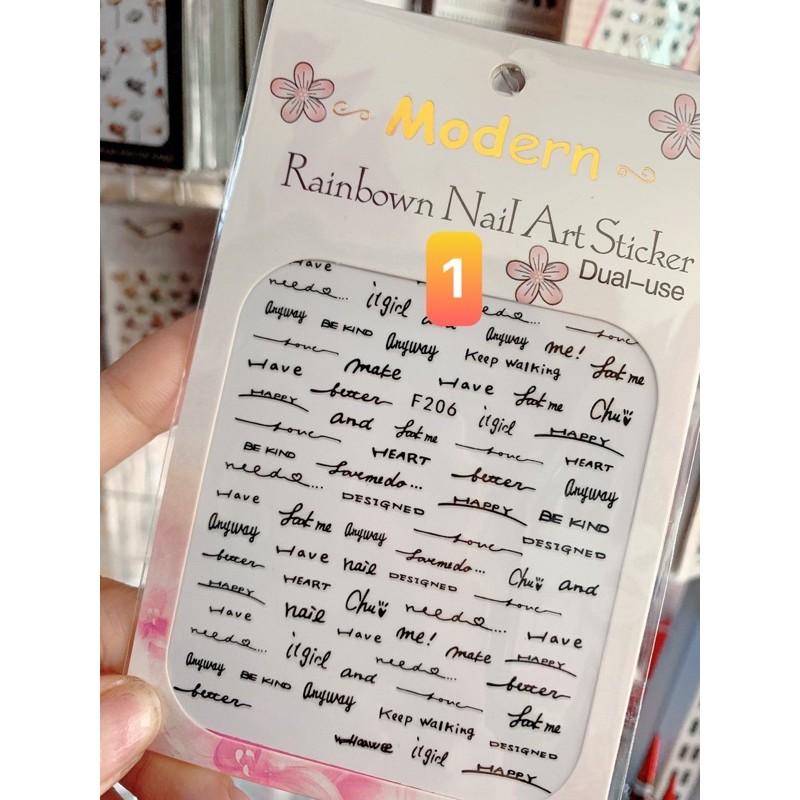 Modern
Rainbown Nail Art Sticker
1
Dual-use
have
need... itgirl and need... love
Anyway BE KIND Anyway Anyway me! Look me
love Keep walking
Have make Have Look me Chu
HAPPY better F206 itgirl HAPPY
love and Look me love HEART
BE KIND HEART better Anyway
need... Lovemedo... HAPPY BE KIND
Have DESIGNED love DESIGNED
Anyway Look me Anyway Lovemedo... Chu and
better Have nail DESIGNED love
HAPPY HEART Chu need... Have
Have nail Have me! make HAPPY
need... itgirl and need... better
Anyway BE KIND Anyway love Look me
better Keep walking DESIGNED
itgirl HAPPY